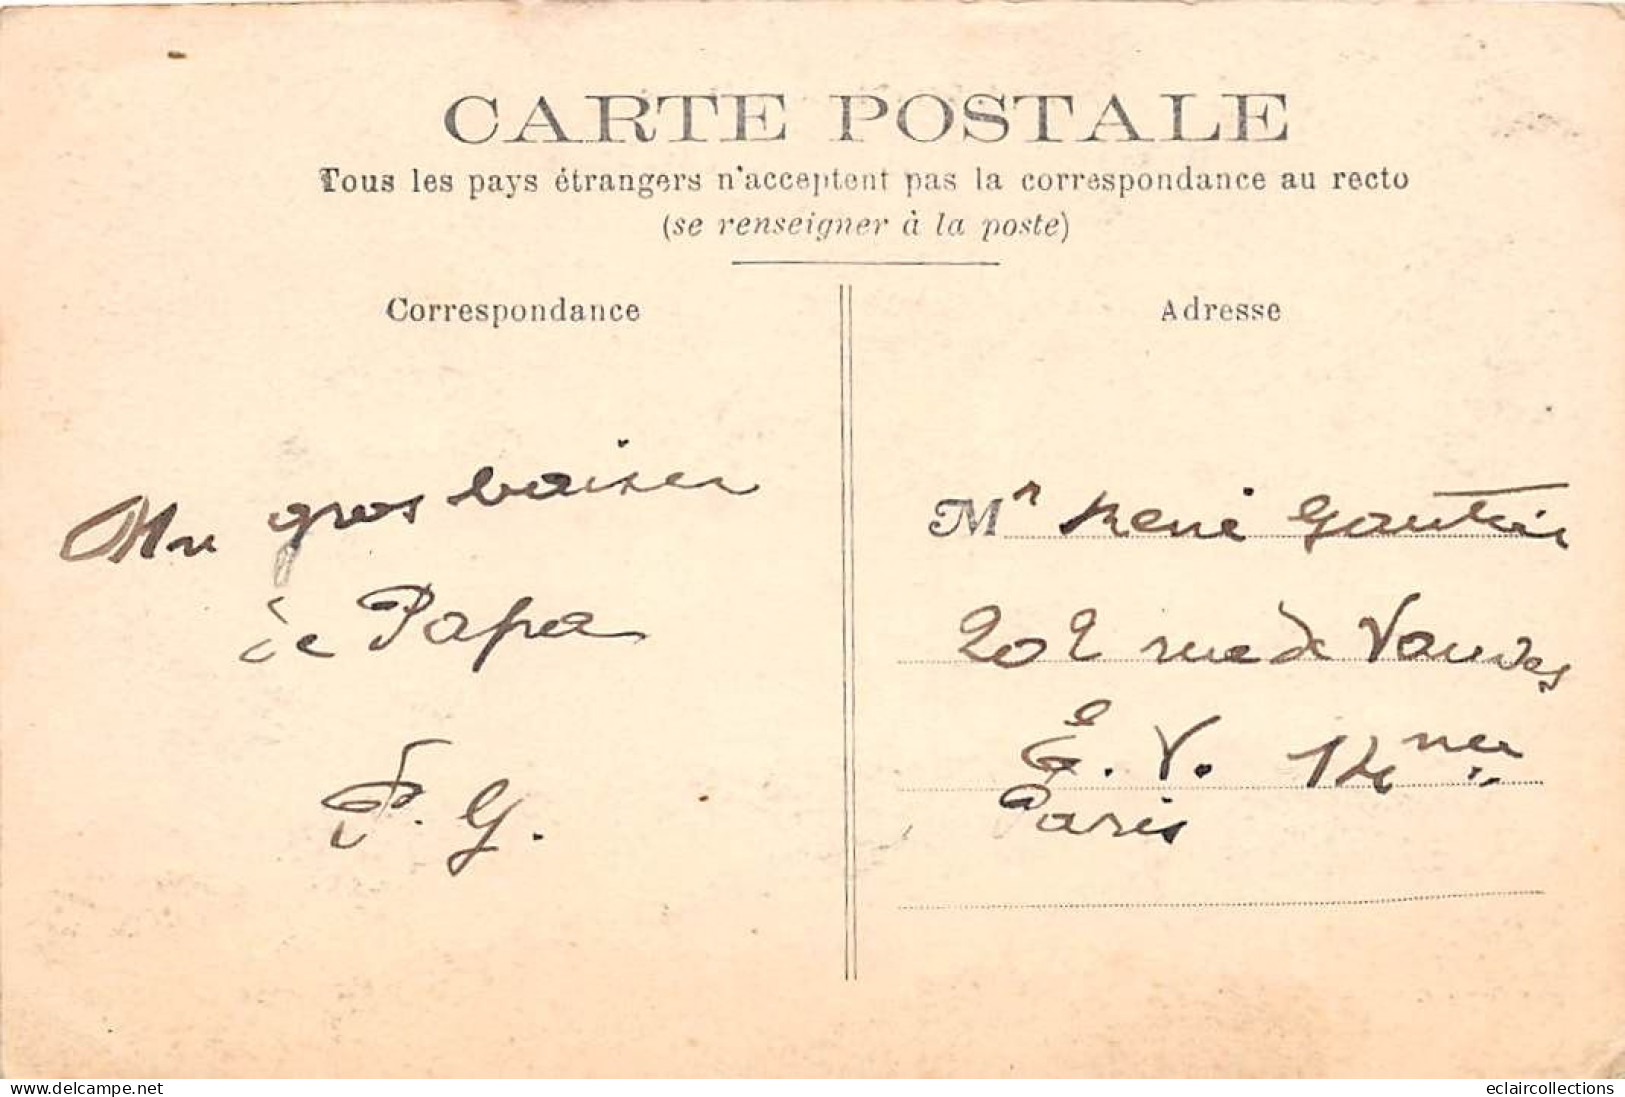 CARTE POSTALE
Tous les pays étrangers n'acceptent pas la correspondance au recto
(se renseigner à la poste)
Correspondance
Adresse
Un gros baiser
de Papa
P. G.
Mr René Gautier
202 rue de Vanves
E. V. 14me
Paris
www.delcampe.net
eclaircollections